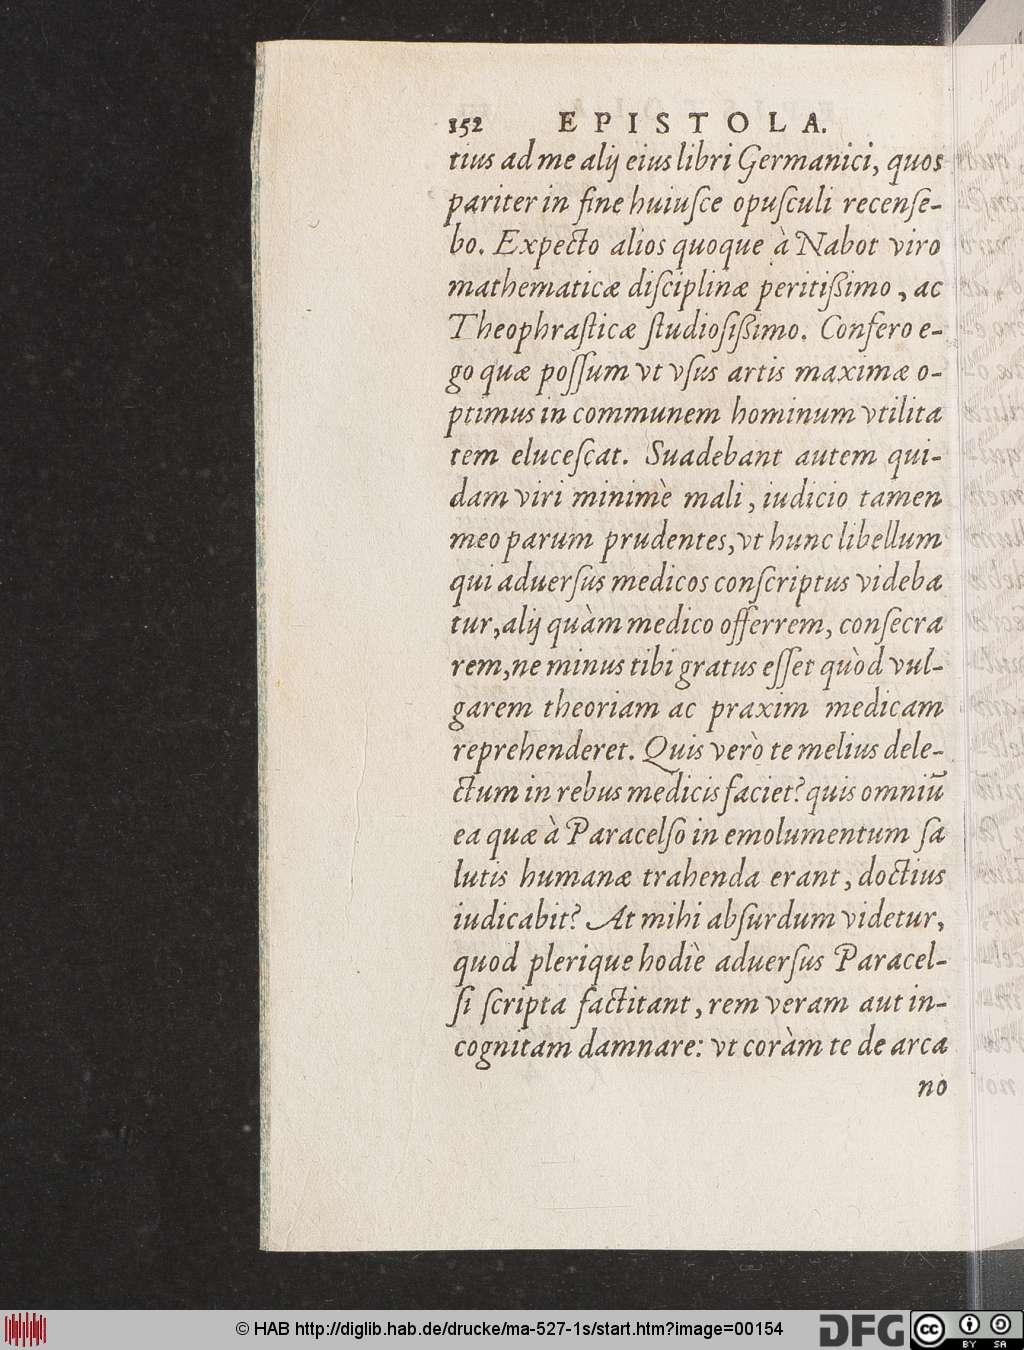 152 EPISTOLA.
tius ad me alij eius libri Germanici, quos
pariter in fine huiuſce opuſculi recenſe-
bo. Expecto alios quoque à Nabot viro
mathematicæ diſciplinæ peritiſſimo, ac
Theophraſticæ ſtudioſiſſimo. Confero e-
go quæ poſſum vt vſus artis maximæ o-
ptimus in communem hominum vtilita
tem eluceſcat. Suadebant autem qui-
dam viri minimè mali, iudicio tamen
meo parum prudentes, vt hunc libellum
qui aduerſus medicos conſcriptus videba
tur, alij quàm medico offerrem, conſecra
rem, ne minus tibi gratus eſſet quòd vul-
garem theoriam ac praxim medicam
reprehenderet. Quis verò te melius dele-
ctum in rebus medicis faciet? quis omniū
ea quæ à Paracelſo in emolumentum ſa
lutis humanæ trahenda erant, doctius
iudicabit? At mihi abſurdum videtur,
quod plerique hodiè aduerſus Paracel-
ſi ſcripta factitant, rem veram aut in-
cognitam damnare: vt coràm te de arca
no
© HAB http://diglib.hab.de/drucke/ma-527-1s/start.htm?image=00154
DFG
cc BY SA